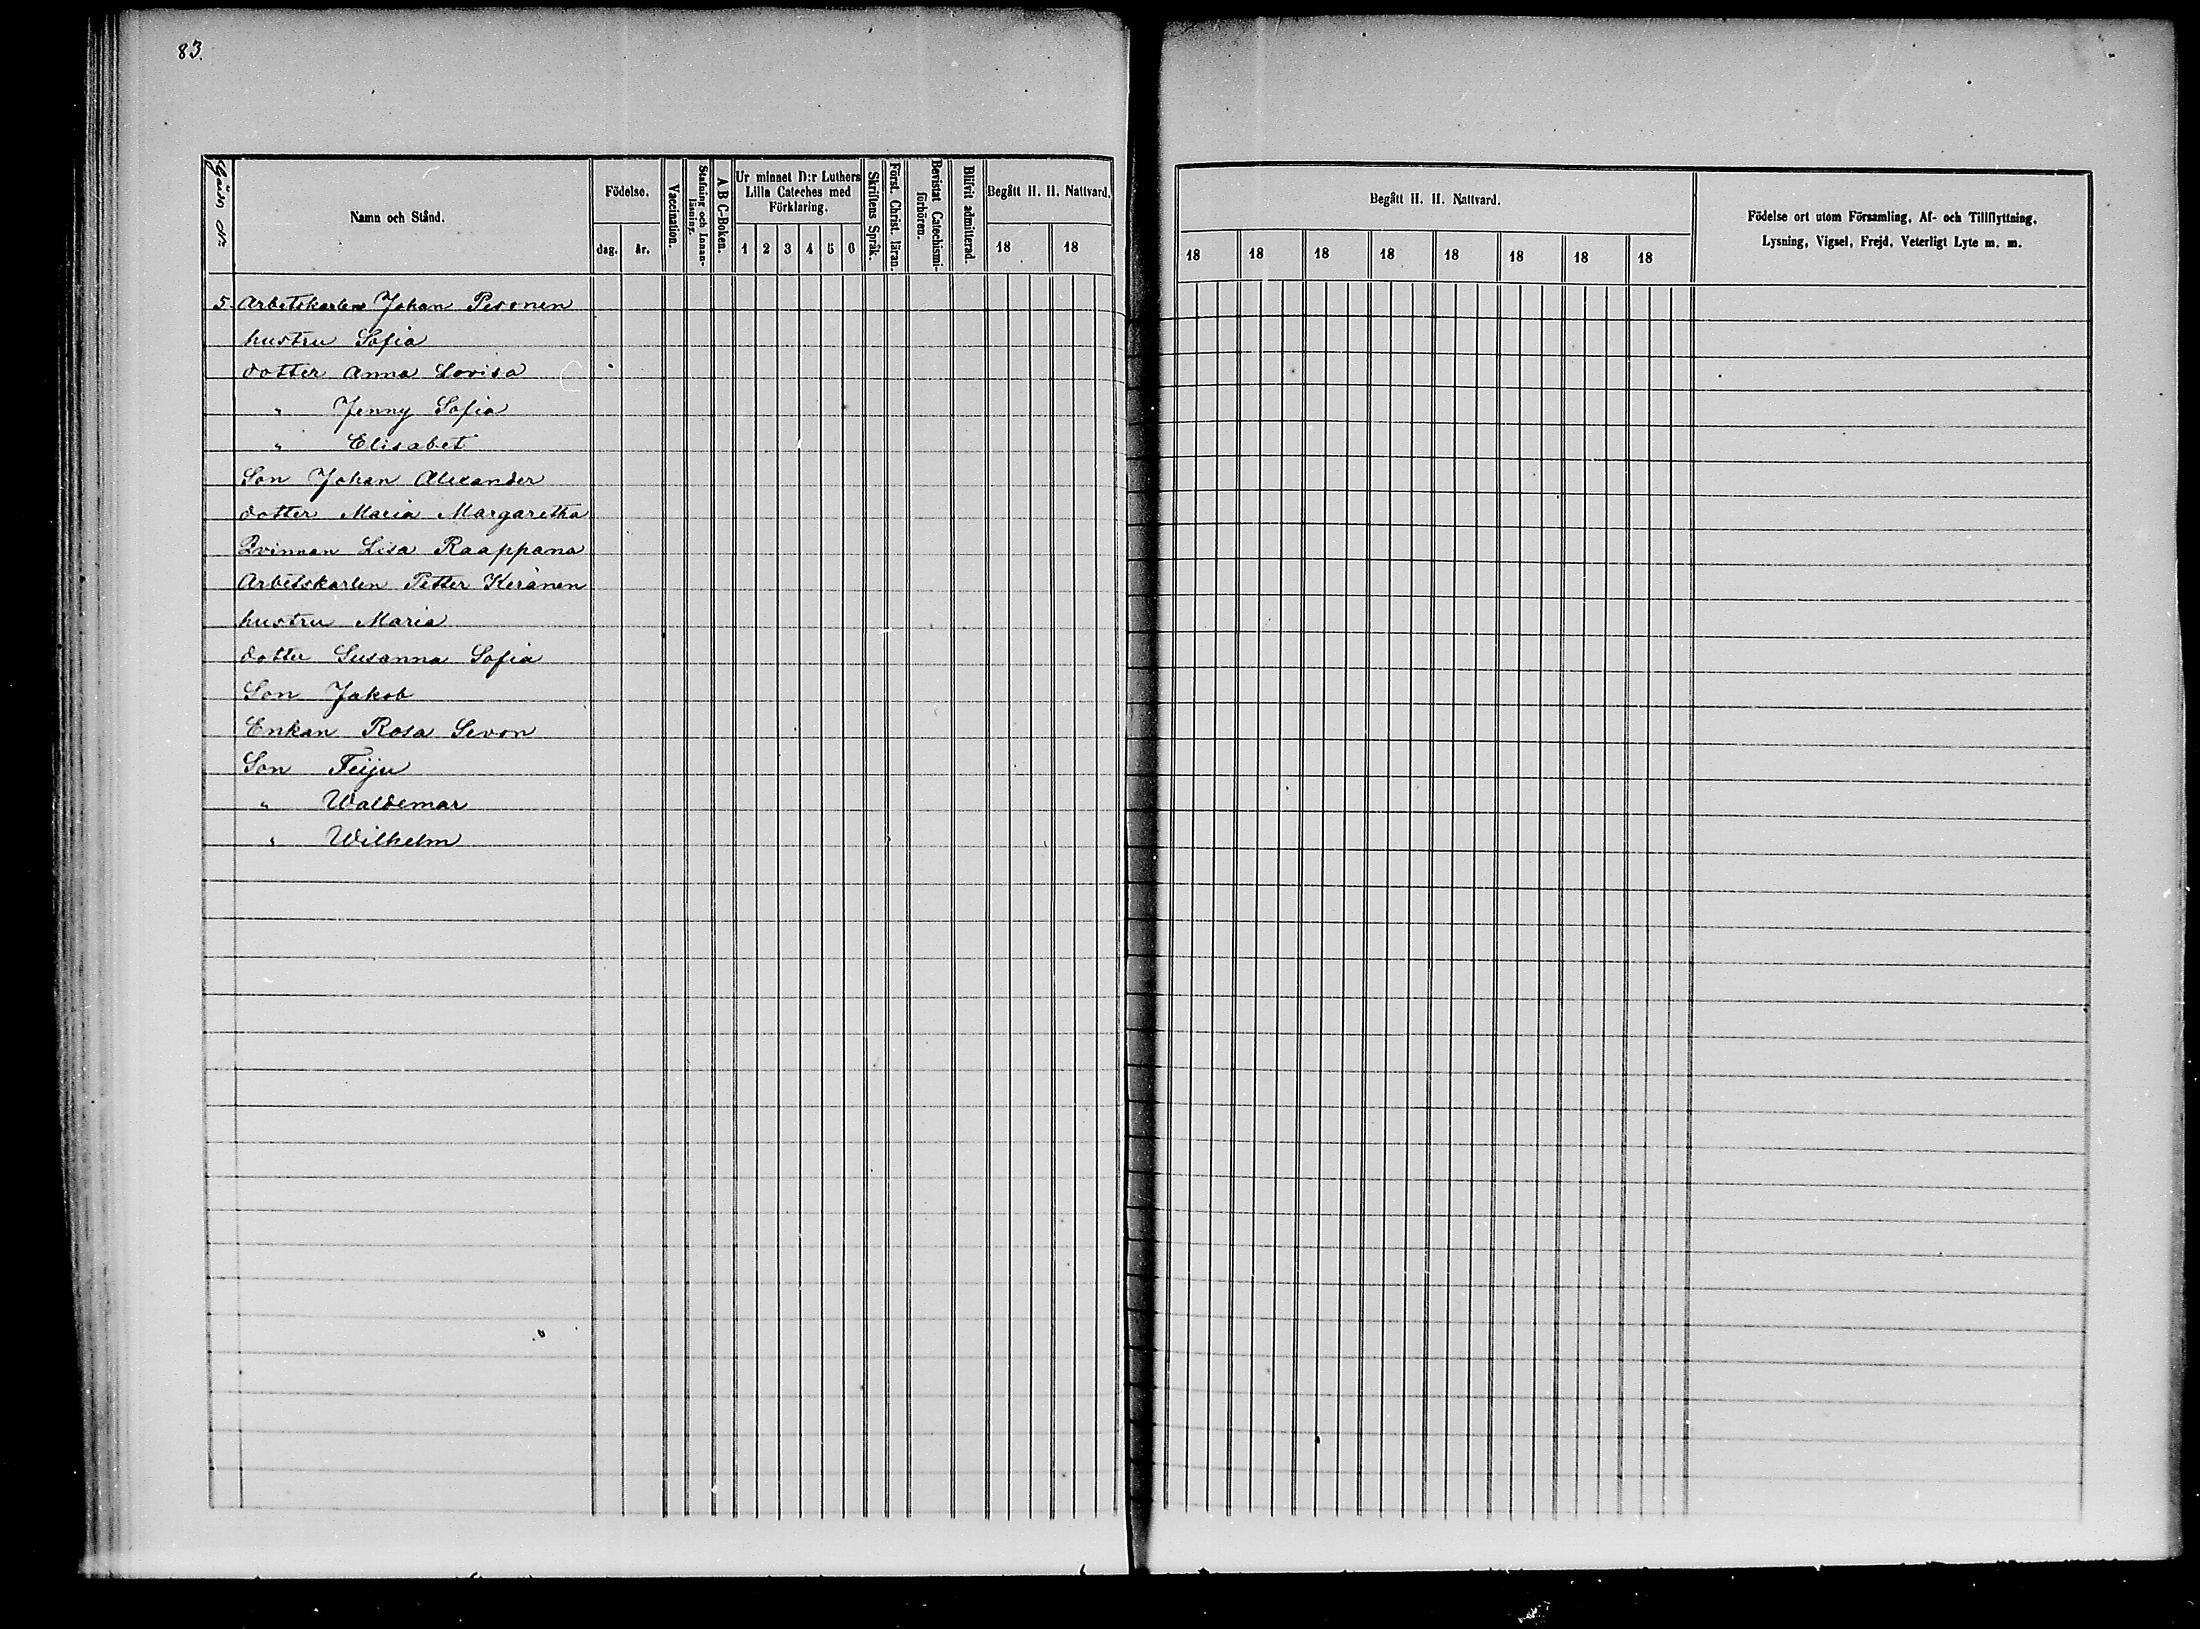 83.
Gårds Nr
Namn och Stånd.
Födelse.
dag.
år.
Vaccination.
Stafning och Innan-
läsning.
A B C-Boken.
Ur minnet D:r Luthers
Lilla Cateches med
Förklaring.
1 2 3 4 5 6
Skriftens Språk.
Först. Christ. läran.
Bevistat Catechismi-
förhören.
Blifvit admitterad.
Begått H. H. Nattvard.
18 18
Begått H. H. Nattvard.
18 18 18 18 18 18 18 18
Födelse ort utom Församling, Af- och Tillflyttning,
Lysning, Vigsel, Frejd, Veterligt Lyte m. m.
5. Arbetskarlen Johan Pesonen
hustru Sofia
dotter Anna Lovisa
" Jenny Sofia
" Elisabet
Son Johan Alexander
dotter Maria Margaretha
Qvinnan Lisa Raappana
Arbetskarlen Petter Keränen
hustru Maria
dotter Susanna Sofia
Son Jakob
Enkan Rosa Sevon
Son Feiju
" Waldemar
" Wilhelm